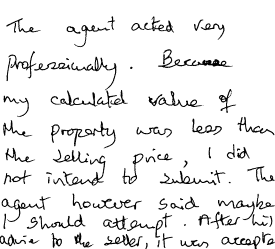 The agent acted very
professionally. Because
my calculated value of
the property was less than
the selling price, I did
not intend to submit. The
agent however said maybe
I should attempt. After his
advise to the seller, it was accepts